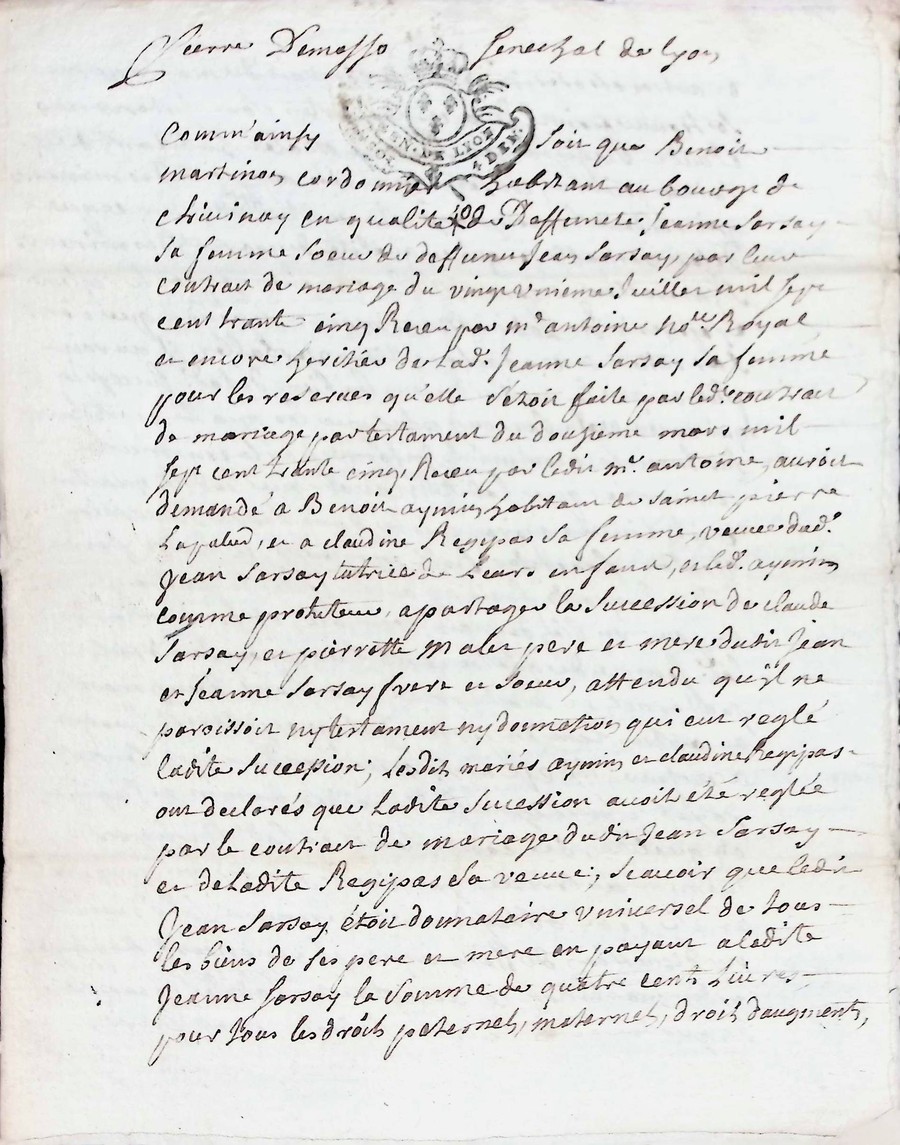 Pierre Demasso Senechal de lyon
GEN. DE LYON
4 DEN.
Comm'ainsy soit que Benoit
martinon cordonnier habitant au bourg de
chivinay en qualité de Deffunte Jeanne Sarsay
sa femme soeur de deffunt Jean Sarsay, par leur
contrat de mariage du vingt unième Juillet mil sept
cent trante cinq Receu par me antoine nore Royal
et encore heritier de lade. Jeanne Sarsay sa femme
pour les reserves qu'elle s'étoit faite par led. contrat
de mariage par testament du dousieme mars mil
sept cent trante cinq Receu par ledit me. antoine, auroit
demandé a Benoit aymin habitant de saint pierre
Lapalud, et a claudine Regipas sa femme, veuve dud.
Jean Sarsay tutrice de Leurs enfans, et led. aymin
comme protuteur, a partager la Sucession de claude
Sarsay, et pierrette malet pere et mere dudit Jean
et Jeanne Sarsay frere et soeur, attendu qu'il ne
paroissoit ny testament ny donnation qui eut reglé
ladite Sucession; Lesdits mariés aymin et claudine Regipas
ont declarés que Ladite Sucession avoit été reglée
par le contrat de mariage dudit Jean Sarsay
et de Ladite Regipas sa veuve; scavoir que ledit
Jean Sarsay étoit donnataire universel de tous
les biens de ses pere et mere en payant a ladite
Jeanne Sarsay la Somme de quatre cent Livres
pour tous les droits paternels, maternels, droits daugments,